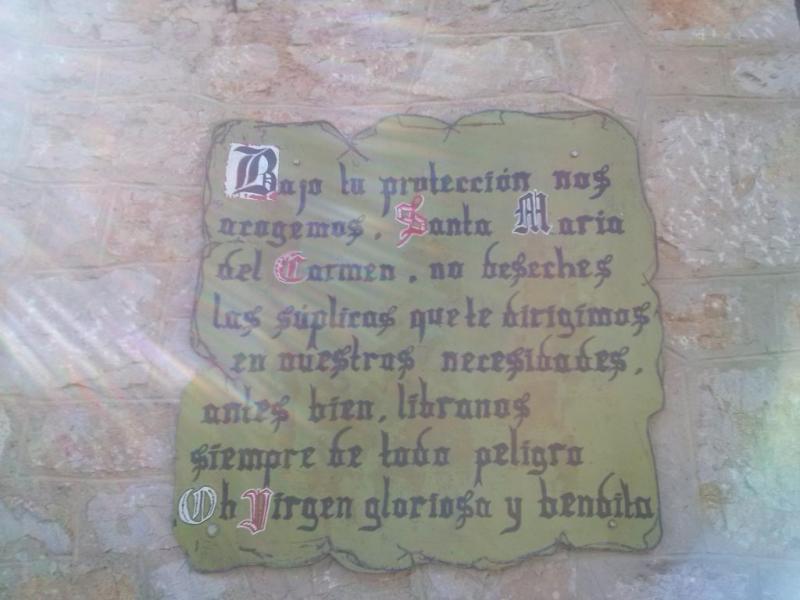 Bajo tu protección nos
acogemos, Santa Maria
del Carmen, no deseches
las súplicas que te dirigimos
en nuestras necesidades,
antes bien, libranos
siempre de todo peligro
Oh Virgen gloriosa y bendita